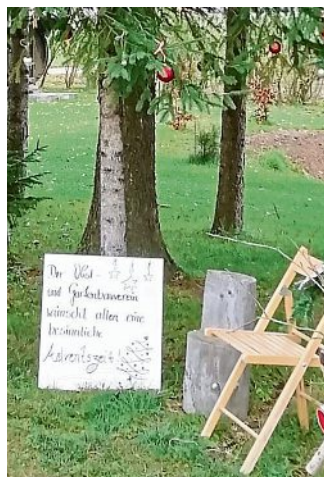 Der Obst -
und Gartenbauverein
wünscht allen eine
besinnliche
Adventszeit!